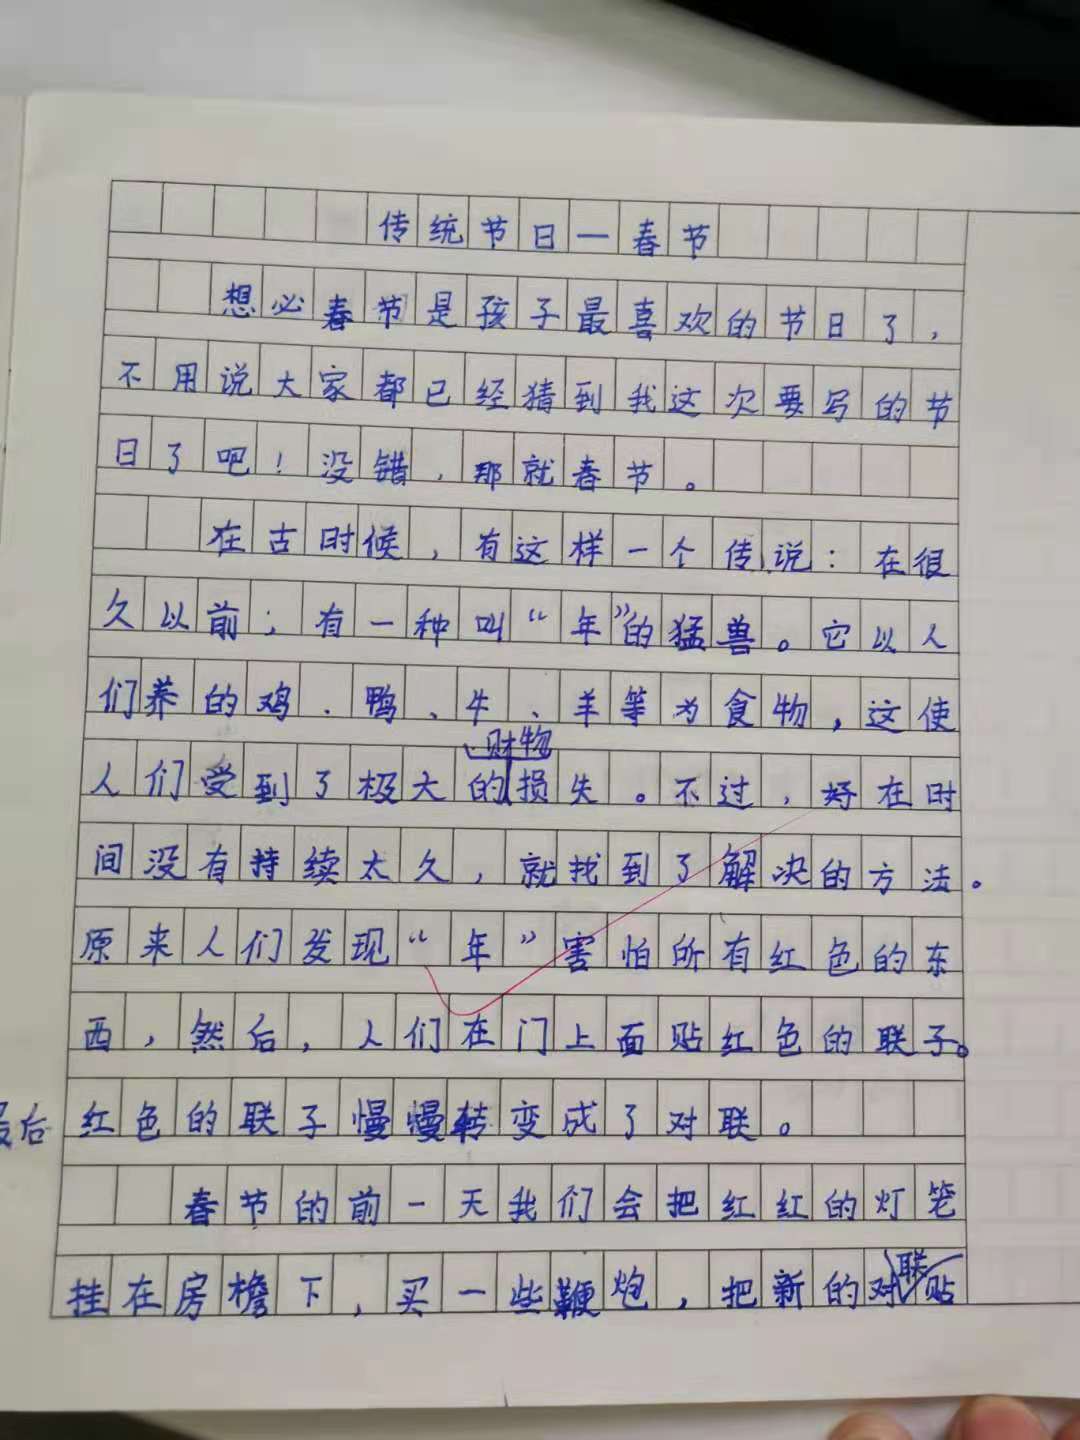 传统节日一春节
想必春节是孩子最喜欢的节日了，
不用说大家都已经猜到我这次要写的节
日了吧！没错，那就春节。
在古时候，有这样一个传说：在很
久以前；有一种叫“年”的猛兽。它以人
们养的鸡、鸭、牛、羊等为食物，这使
人们受到了极大的财物损失。不过，好在时
间没有持续太久，就找到了解决的方法。
原来人们发现“年”害怕所有红色的东
西，然后，人们在门上面贴红色的联子。
最后红色的联子慢慢转变成了对联。
春节的前一天我们会把红红的灯笼
挂在房檐下，买一些鞭炮，把新的对联贴